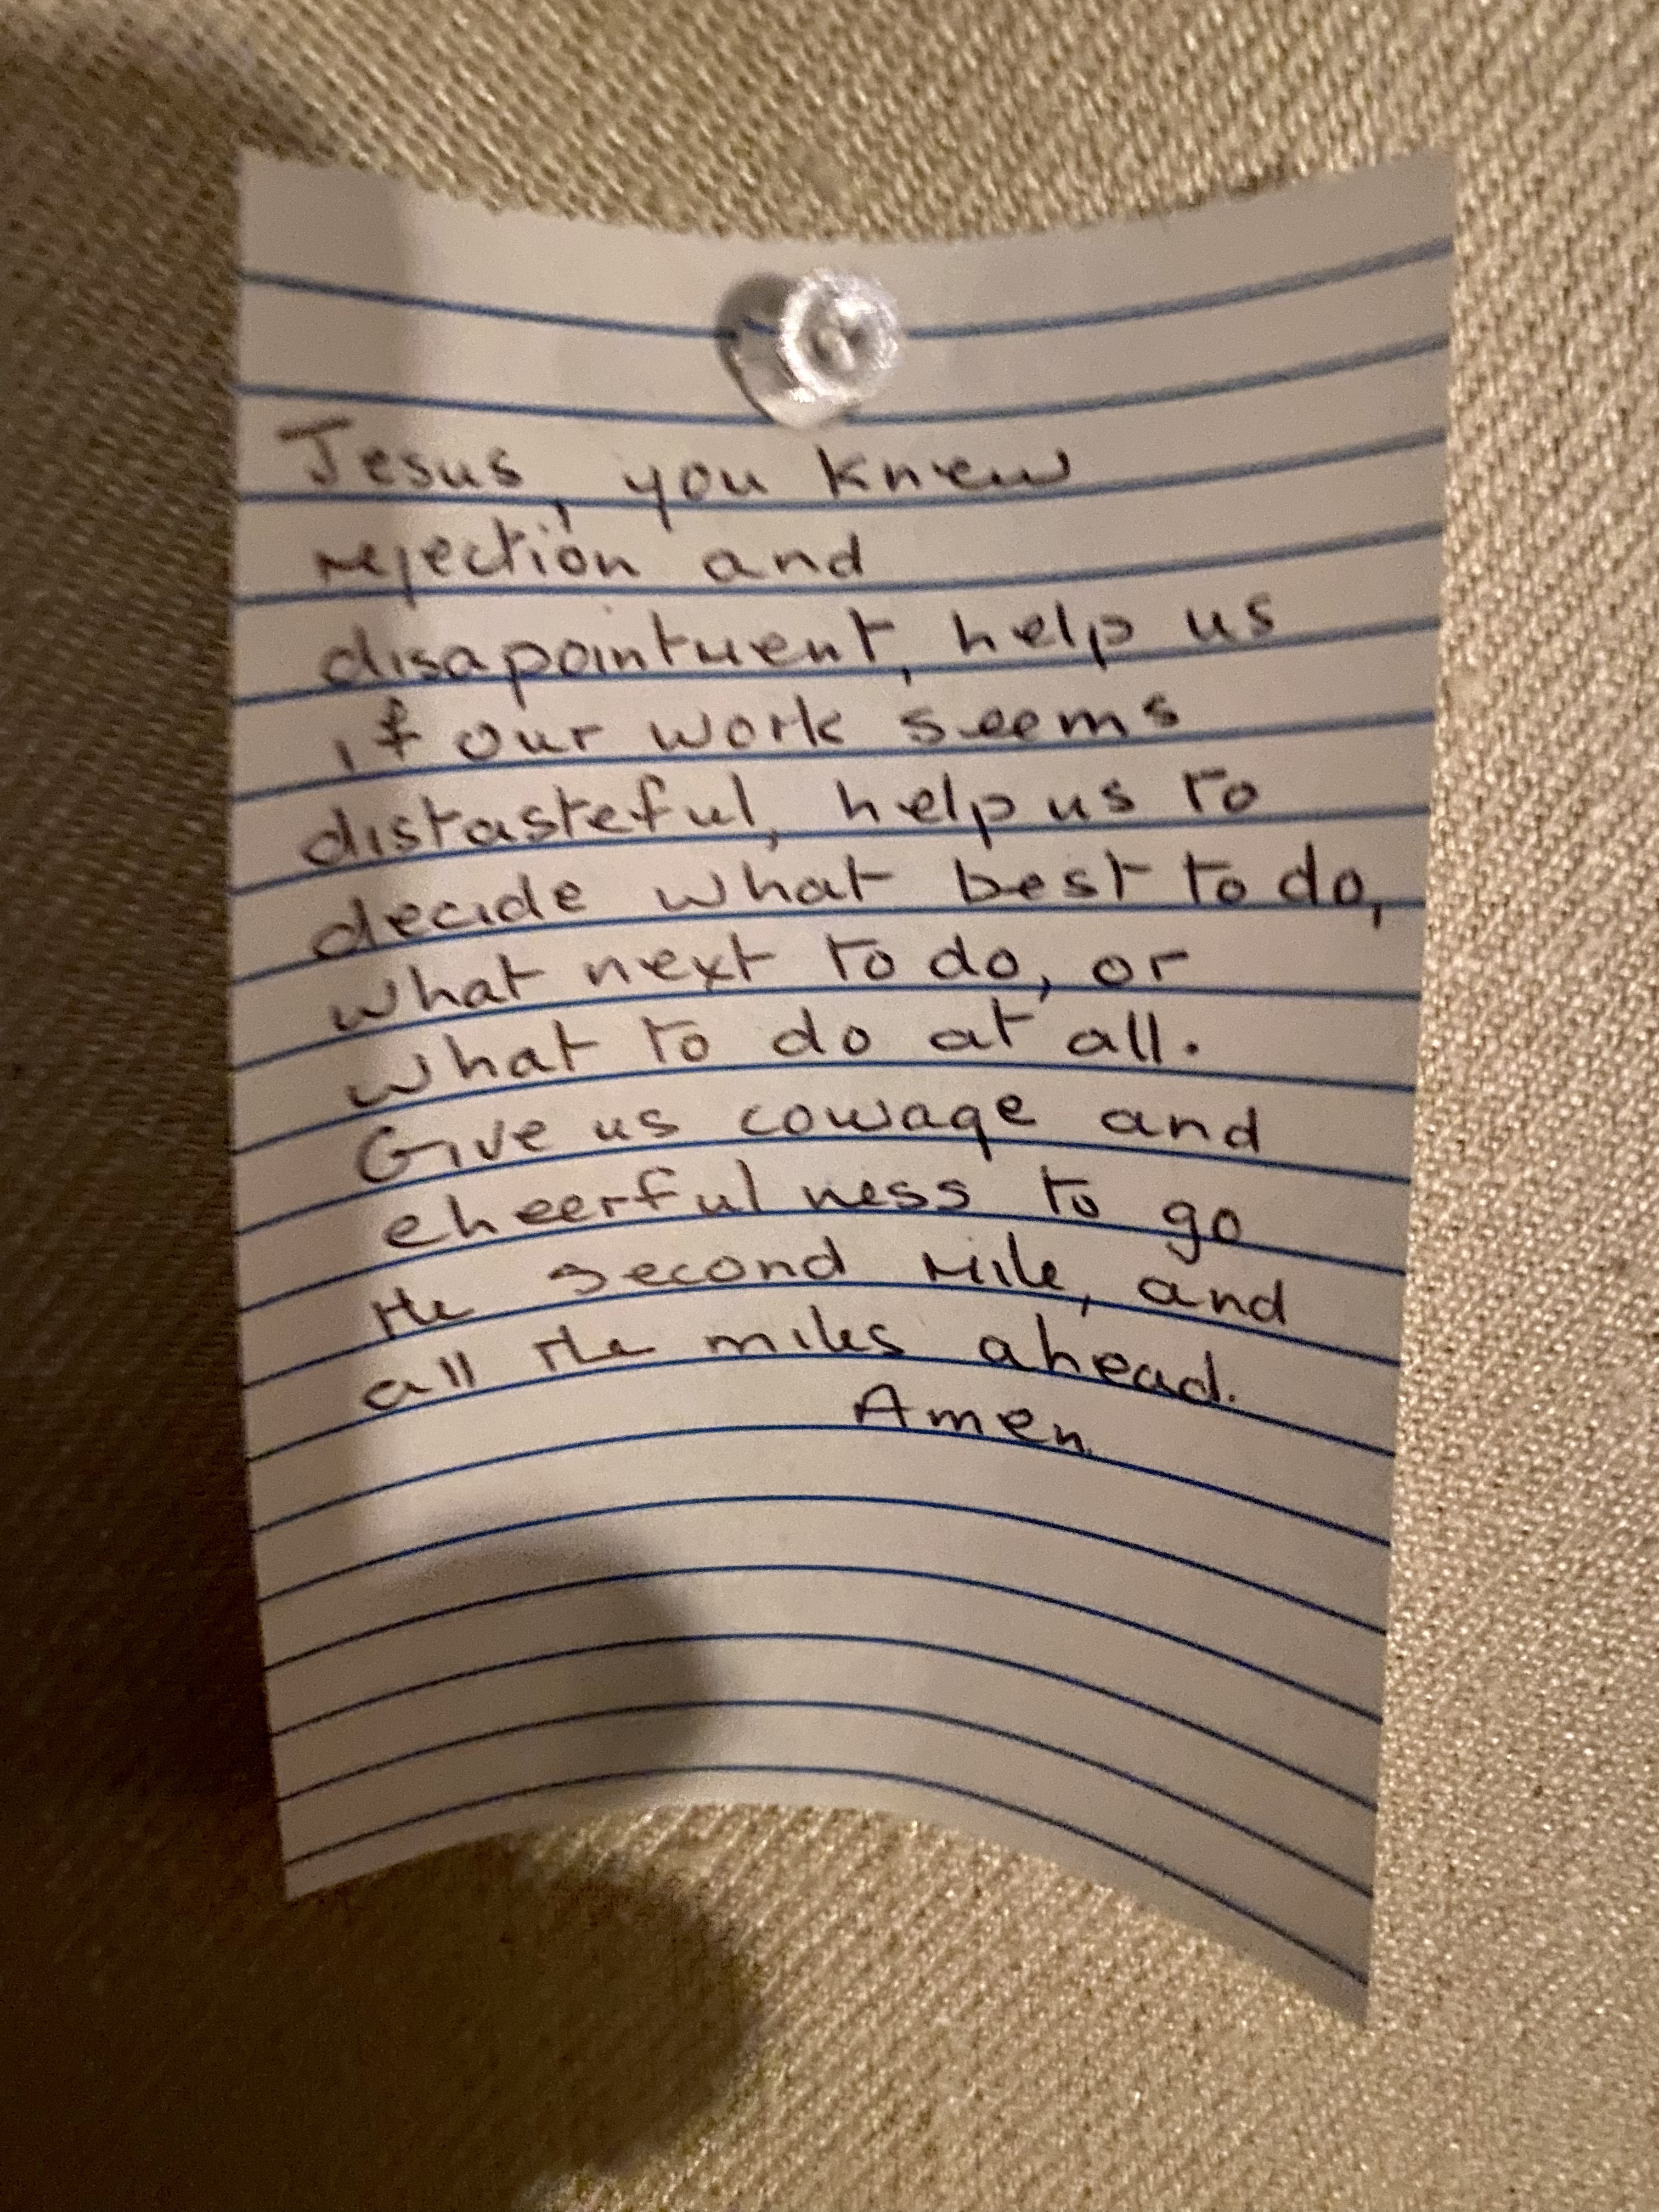 Jesus, you knew
rejection and
disapointment, help us
if our work seems
distasteful, help us to
decide what best to do,
what next to do, or
what to do at all.
Give us courage and
cheerfulness to go
the second mile, and
all the miles ahead.
Amen.